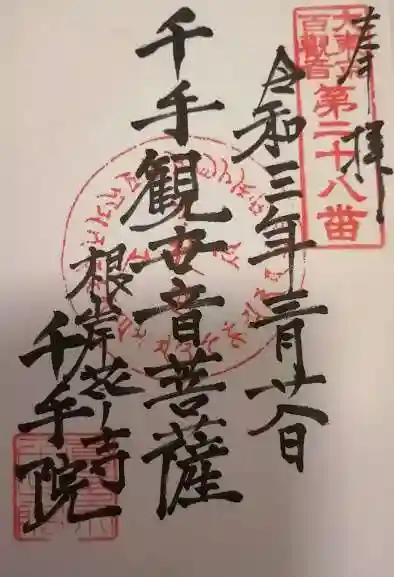 奉拝
大東京
百観音
第二十八番
令和三年三月廿八日
千手観世音菩薩
根岸花ノ寺
千手院